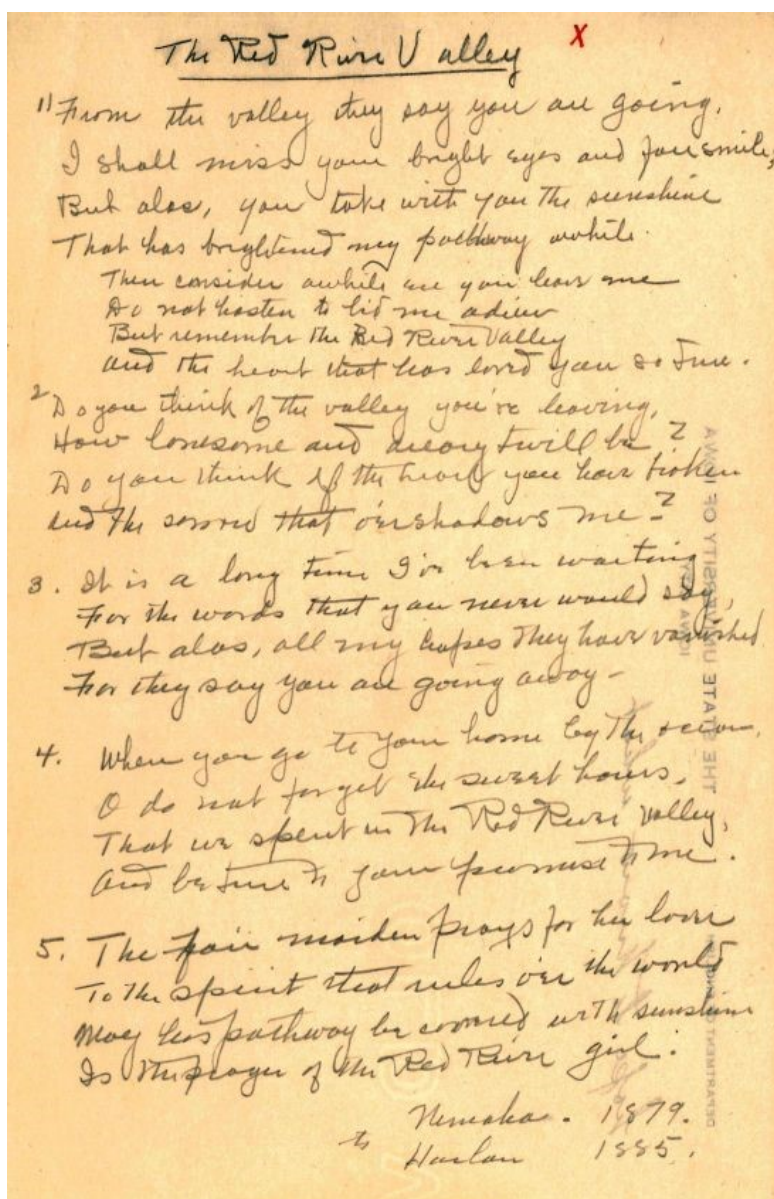 The Red River Valley X
1) From the valley they say you are going,
I shall miss your bright eyes and fair smile,
But alas, you take with you the sunshine
That has brightened my pathway awhile.
Then consider awhile ere you leave me
Do not hasten to bid me adieu
But remember the Red River Valley
And the heart that has loved you so true.
2 Do you think of the valley you're leaving,
How lonesome and dreary twill be?
Do you think of the heart you have broken
And the sorrow that o'ershadows me?
3. It is a long time I've been waiting
For the words that you never would say,
But alas, all my hopes they have vanished
For they say you are going away -
4. When you go to your home by the ocean,
O do not forget the sweet hours,
That we spent in the Red River Valley,
And be true to your promise to me.
5. The fair maiden prays for her lover
To the spirit that rules o'er the world
May his pathway be covered with sunshine
Is the prayer of the Red River girl.
Nemaha. 1879.
to Harlan 1885.
THE STATE UNIVERSITY OF IOWA
IOWA CITY